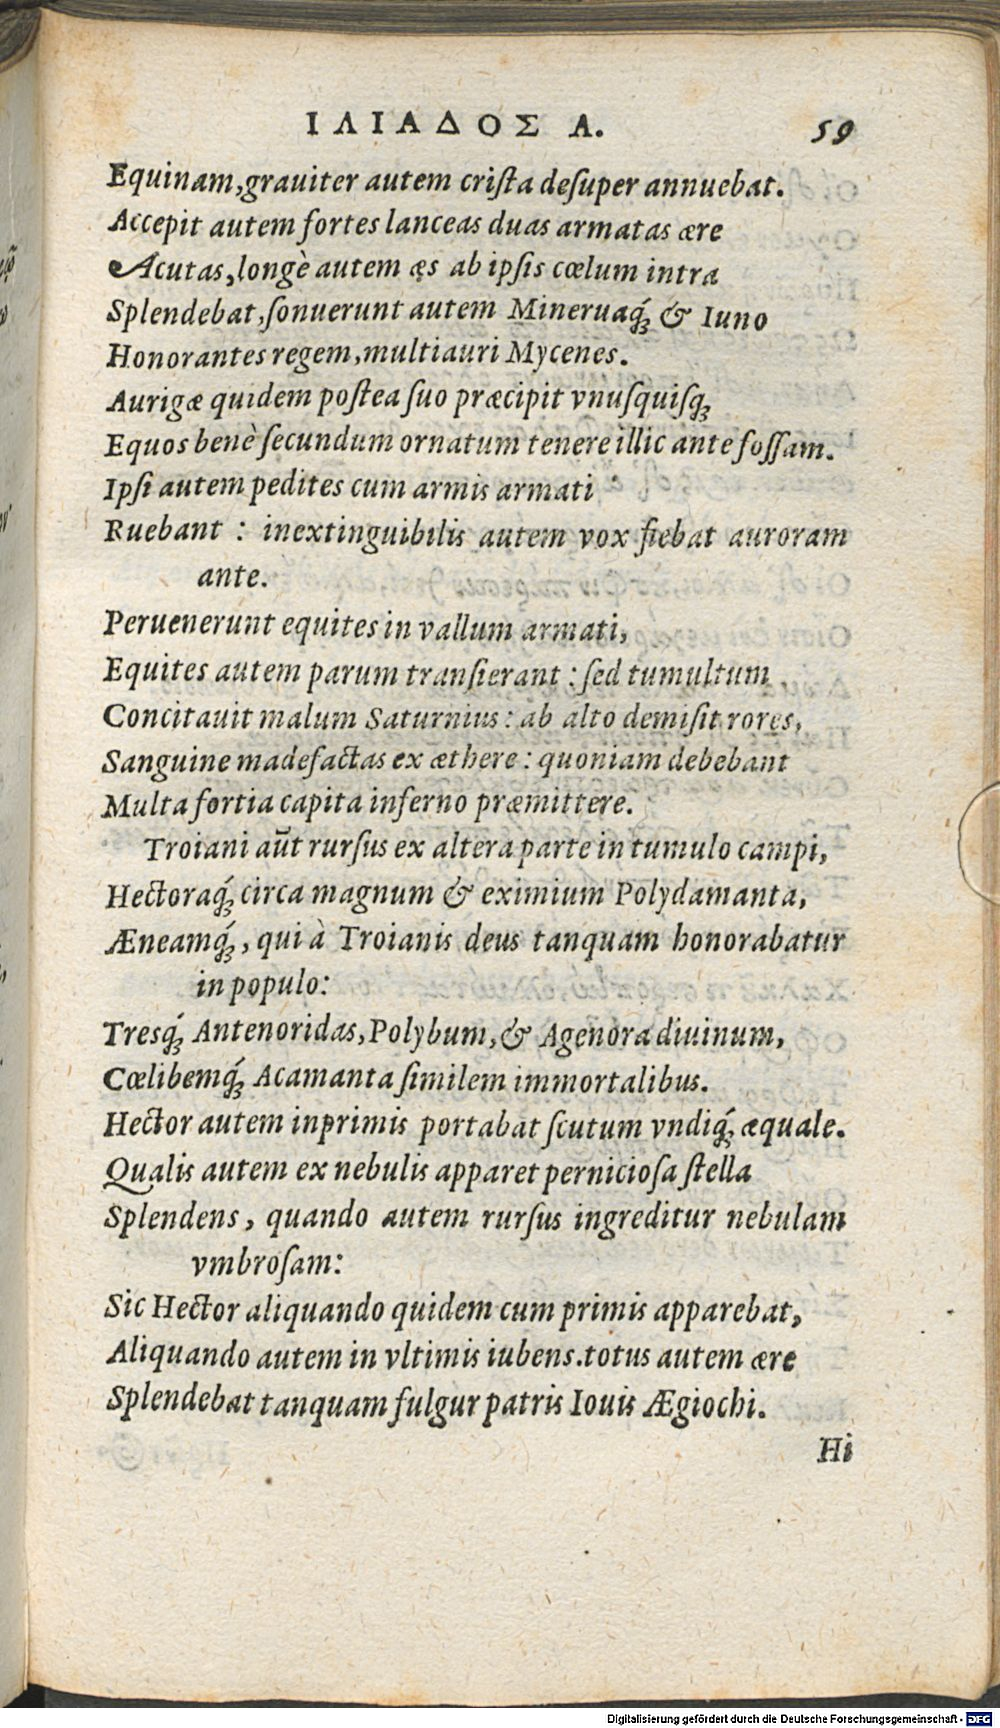 ΙΛΙΑΔΟΣ Λ. 59
Equinam, grauiter autem criſta deſuper annuebat.
Accepit autem fortes lanceas duas armatas ære
Acutas, longè autem æs ab ipſis cœlum intra
Splendebat, ſonuerunt autem Mineruaq́; & Iuno
Honorantes regem, multiauri Mycenes.
Aurigæ quidem poſtea ſuo præcipit vnuſquiſq;
Equos benè ſecundum ornatum tenere illic ante foſſam.
Ipſi autem pedites cum armis armati
Ruebant : inextinguibilis autem vox fiebat auroram
ante.
Peruenerunt equites in vallum armati,
Equites autem parum tranſierant : ſed tumultum
Concitauit malum Saturnius : ab alto demiſit rores,
Sanguine madefactas ex æthere : quoniam debebant
Multa fortia capita inferno præmittere.
Troiani aūt rurſus ex altera parte in tumulo campi,
Hectoraq́; circa magnum & eximium Polydamanta,
Æneamq́;, qui à Troianis deus tanquam honorabatur
in populo:
Tresq́; Antenoridas, Polybum, & Agenora diuinum,
Cœlibemq́; Acamanta ſimilem immortalibus.
Hector autem inprimis portabat ſcutum vndiq́; æquale.
Qualis autem ex nebulis apparet pernicioſa ſtella
Splendens, quando autem rurſus ingreditur nebulam
vmbroſam:
Sic Hector aliquando quidem cum primis apparebat,
Aliquando autem in vltimis iubens. totus autem ære
Splendebat tanquam fulgur patris Iouis Ægiochi.
Hi
Digitalisierung gefördert durch die Deutsche Forschungsgemeinschaft - DFG